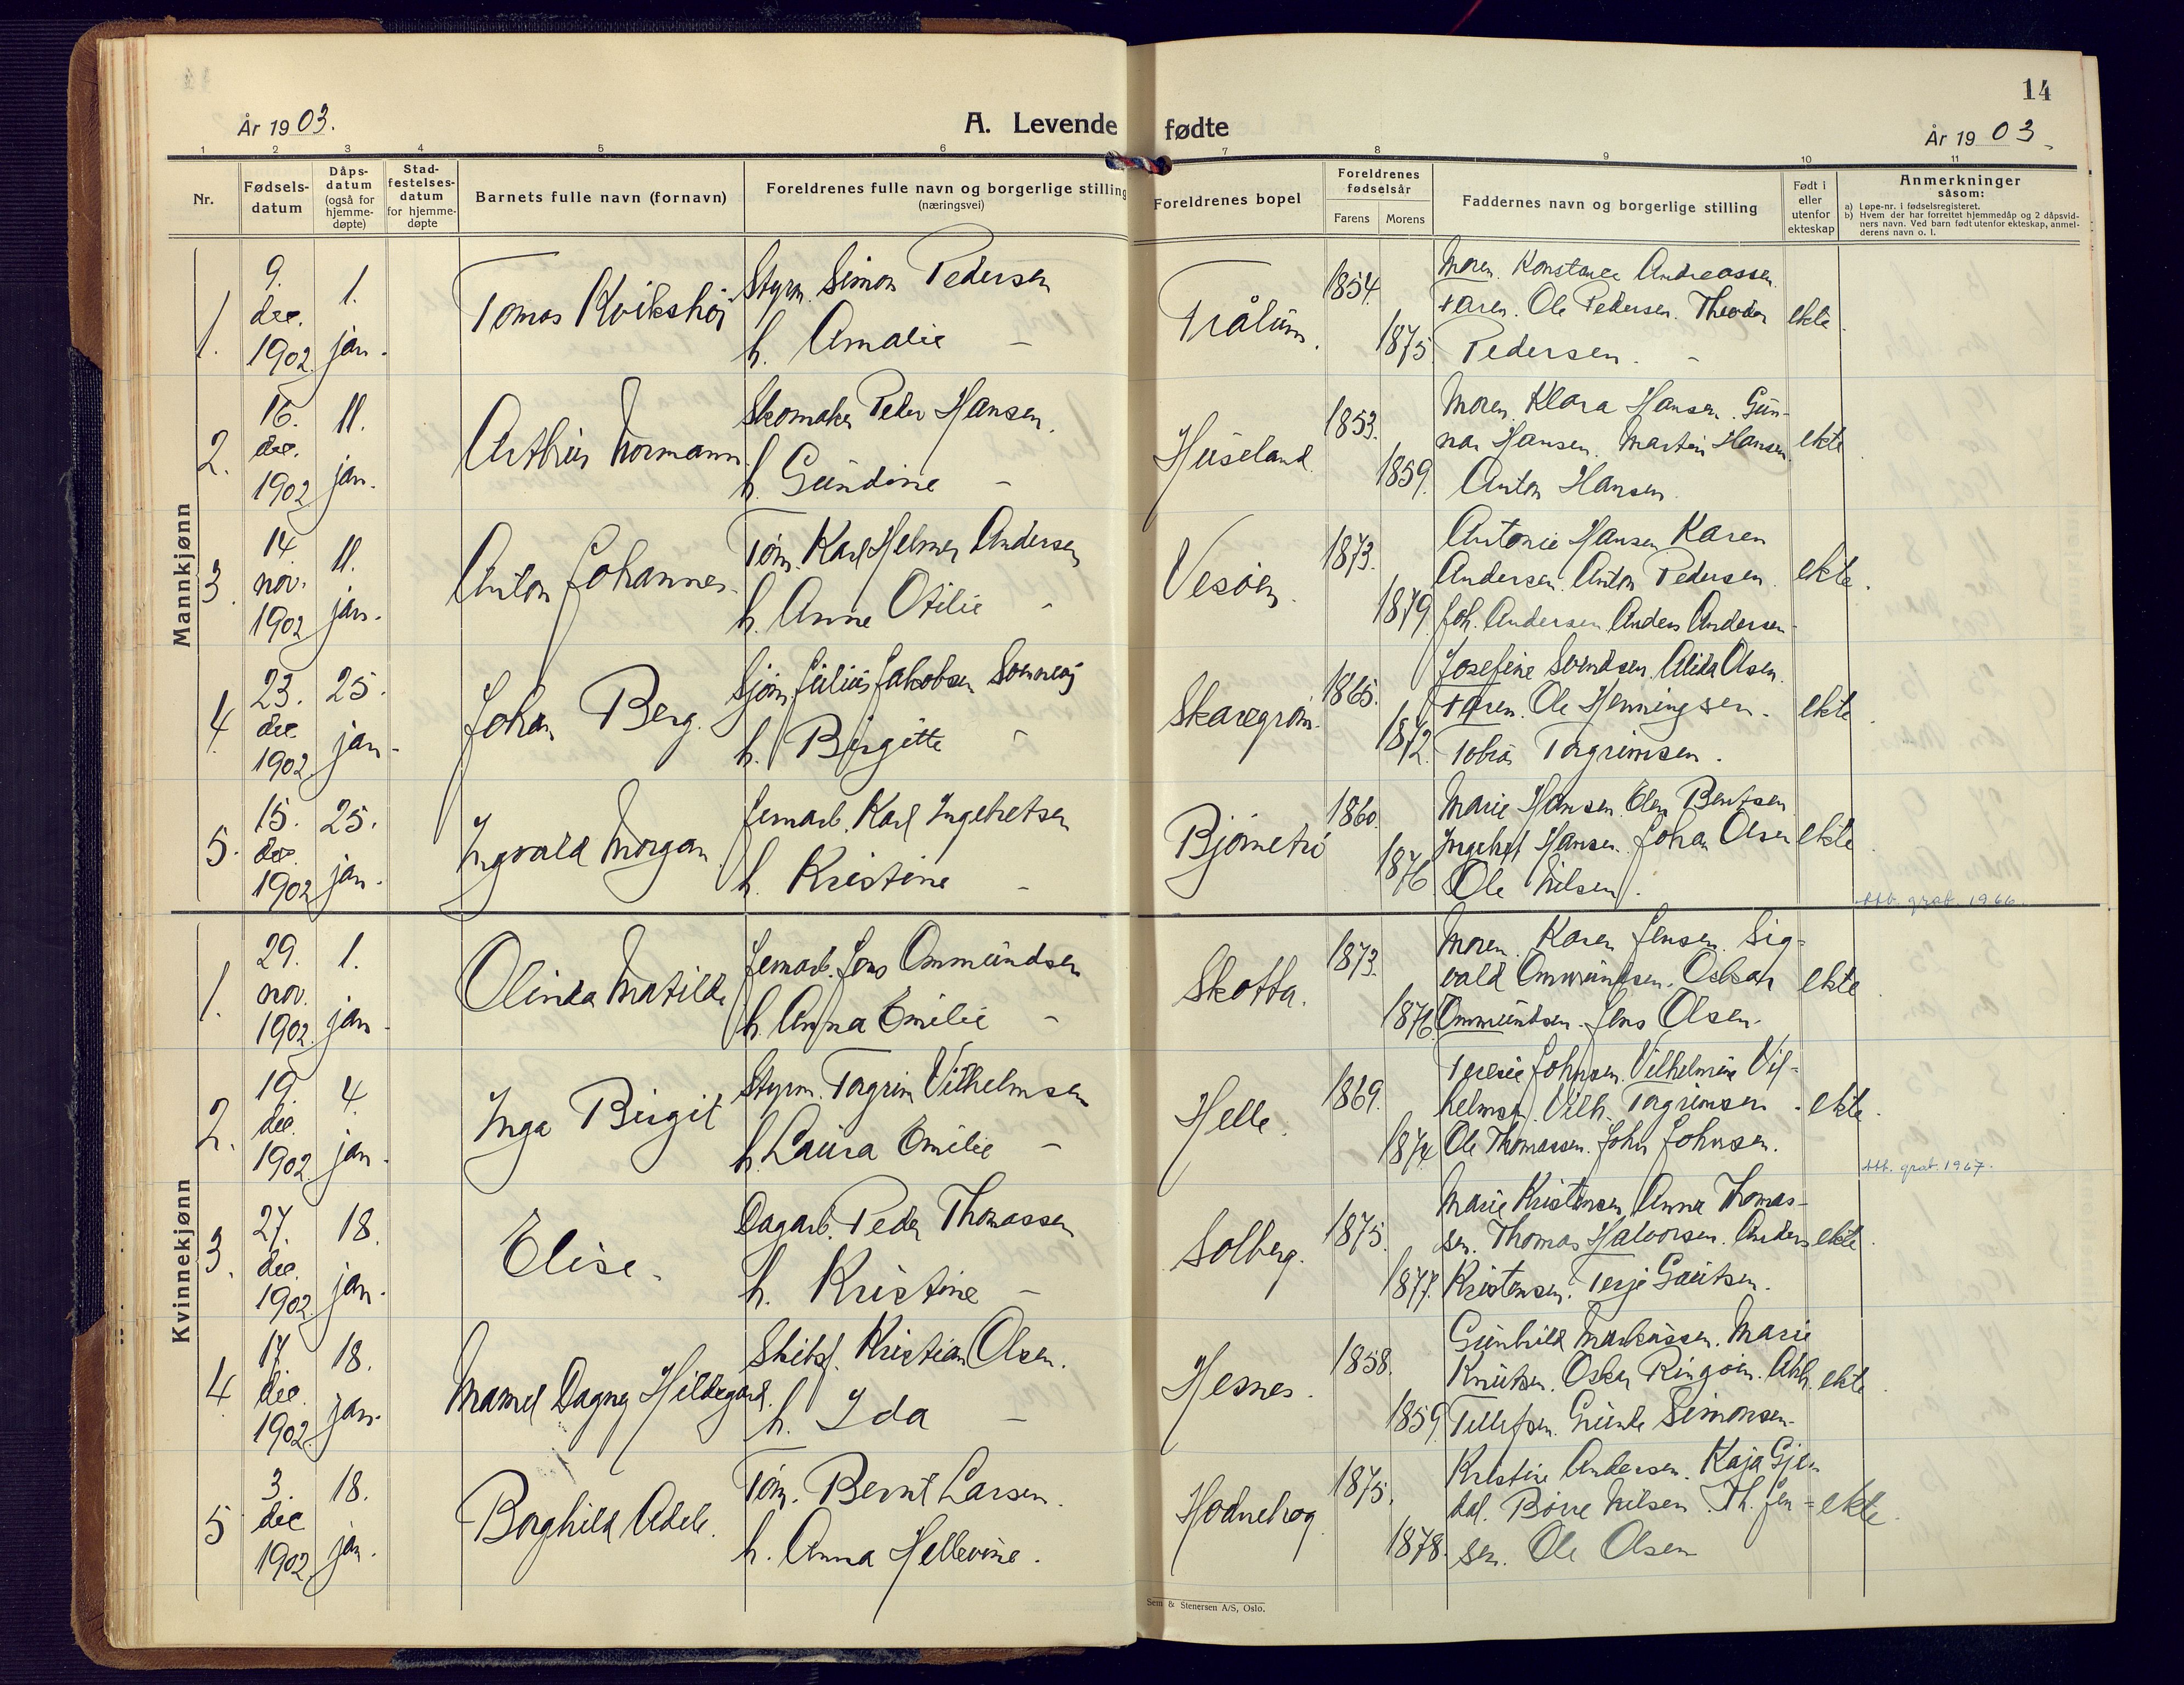 14
År 1903.
A. Levende fødte
År 1903
1 2 3 4 5 6 7 8 9 10 11
Nr.
Fødsels-
datum
Dåps-
datum
(også for
hjemme-
døpte)
Stad-
festelses-
datum
for hjemme-
døpte
Barnets fulle navn (fornavn)
Foreldrenes fulle navn og borgerlige stilling
(næringsvei)
Foreldrenes bopel
Foreldrenes
fødselsår
Farens Morens
Faddernes navn og borgerlige stilling
Født i
eller
utenfor
ekteskap
Anmerkninger
såsom:
a) Løpe-nr. i fødselsregisteret.
b) Hvem der har forrettet hjemmedåp og 2 dåpsvid-
ners navn. Ved barn født utenfor ekteskap, anmel-
derens navn o. l.
Mannkjønn
1.
9.
dec.
1902
1.
jan.
Tomas Kvikshøi
Styrm. Simon Pedersen
h. Amalie -
Trålum.
1854.
1875
Moren. Konstance Andreassen.
Faren. Ole Pedersen. Theodor
Pedersen. -
ekte
2.
16.
dec.
1902
11.
jan.
Arthur Normann.
Skomaker Peder Hansen.
h. Gundine -
Huseland.
1853.
1859.
Moren. Klara Hansen. Gun-
nar Hansen. Martin Hansen.
Anton Hansen.
ekte
3.
14
nov.
1902
11.
jan.
Anton Johannes.
Tøm. Karl Helmer Andersen
h. Anne Otilie -
Vesøen.
1873.
1879.
Antonie Hansen Karen
Andersen. Anton Pedersen.
Joh. Andersen Anders Andersen
ekte.
4.
23.
dec.
1902
25.
jan.
Johan Berg.
Sjøm. Julius Jakobsen
h. Birgitte -
1865.
1872.
Josefine Svendsen. Alida Olsen.
Faren. Ole Henningsen.
Tobias Torgrimsen.
ekte
5.
15.
dec.
1902
25.
jan.
Ingvald Morgan.
Jernarb. Karl Ingebretsen
h. Kristine -
1860.
1876
Marie Hansen. Elen Bentsen
Hansen. Johan Olsen
Ole Nilsen.
ekte
1966.
Kvinnekjønn
1.
29.
nov.
1902.
1.
jan.
Olinda Matilde
Jernarb. Jens Ommundsen
h. Anna Emilie -
Skotta.
1873.
1876.
Moren. Karen Jensen. Sig-
vald Ommundsen. Oskar
Ommundsen. Jens Olsen.
ekte
2.
19.
dec.
1902
4.
jan.
Inga Birgit
Styrm. Torgrim Vilhelmsen
h. Laura Emilie -
Helle.
1869.
1874
Terese Johnsen. Vilhelmine Vil-
helmsen. Vilh. Torgrimsen.
Ole Thomassen. John Johnsen.
ekte.
1967.
3.
27.
dec.
1902
18.
jan.
Elise.
Dagarb. Peder Thomassen
h. Kristine -
Solberg.
1875.
1877.
Marie Kristensen Anna Thomas-
sen. Thomas Halvorsen. Anders
Kristensen. Terje Gautsen.
ekte
4
17.
dec.
1902.
18.
jan.
Dagny Hildegard.
Skibsf. Kristian Olsen.
h. Ida -
Hesnes.
1858.
1859
Gunhild Markussen. Marie
Knutsen. Oskar Ringøen.
Tellefsen. Gunde Simonsen.
ekte
5
3.
dec
1902
18.
jan.
Borghild Adele.
Tøm. Bernt Larsen.
h. Anna Hellevine.
Hodnebrog.
1875.
1878.
Kristine Andersen. Kaja Gjen
dal. Børre Nilsen. Th. Jen-
sen. Ole Olsen
ekte
Sem & Stenersen A/S, Oslo.